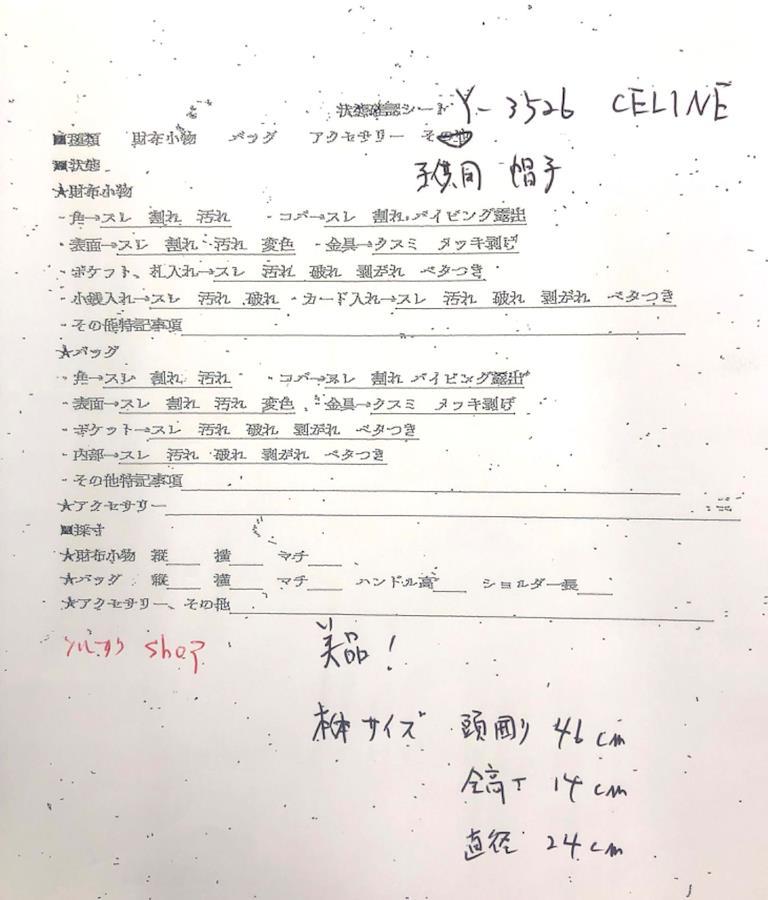 状態確認シート Y-3526 CELINE
■種類 財布小物 バッグ アクセサリー その他
■状態 子供用 帽子
★財布小物
・角→スレ 割れ 汚れ ・コバ→スレ 割れ パイピング露出
・表面→スレ 割れ 汚れ 変色 ・金具→クスミ メッキ剥げ
・ポケット、札入れ→スレ 汚れ 破れ 剥がれ ベタつき
・小銭入れ→スレ 汚れ 破れ ・カード入れ→スレ 汚れ 破れ 剥がれ ベタつき
・その他特記事項
★バッグ
・角→スレ 割れ 汚れ ・コバ→スレ 割れ パイピング露出
・表面→スレ 割れ 汚れ 変色 ・金具→クスミ メッキ剥げ
・ポケット→スレ 汚れ 破れ 剥がれ ベタつき
・内部→スレ 汚れ 破れ 剥がれ ベタつき
・その他特記事項
★アクセサリー
■採寸
★財布小物 縦 横 マチ
★バッグ 縦 横 マチ ハンドル高 ショルダー長
★アクセサリー、その他
shop 美品!
本体サイズ 頭囲り 46cm
全高さ 14cm
直径 24cm